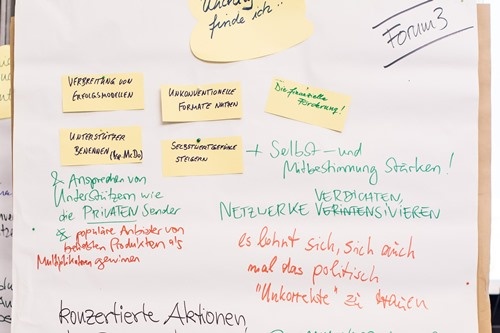 finde ich..
Forum 3
VERBREITUNG VON
ERFOLGSMODELLEN
UNKONVENTIONELLE
FORMATE NUTZEN
Die finanzielle
Förderung!
UNTERSTÜTZER
BENENNEN (Bsp. McDo)
SELBSTWERTGEFÜHLE
STEIGERN
+ Selbst - und
Mitbestimmung Stärken!
& Ansprechen von
Unterstützern wie
die PRIVATEN Sender
& populäre Anbieter von
beliebten Produkten als
Multiplikatoren gewinnen
VERDICHTEN,
NETZWERKE VERINTENSIVIEREN
es lohnt sich, sich auch
mal das politisch
"Unkorrekte" zu trauen
konzertierte Aktionen